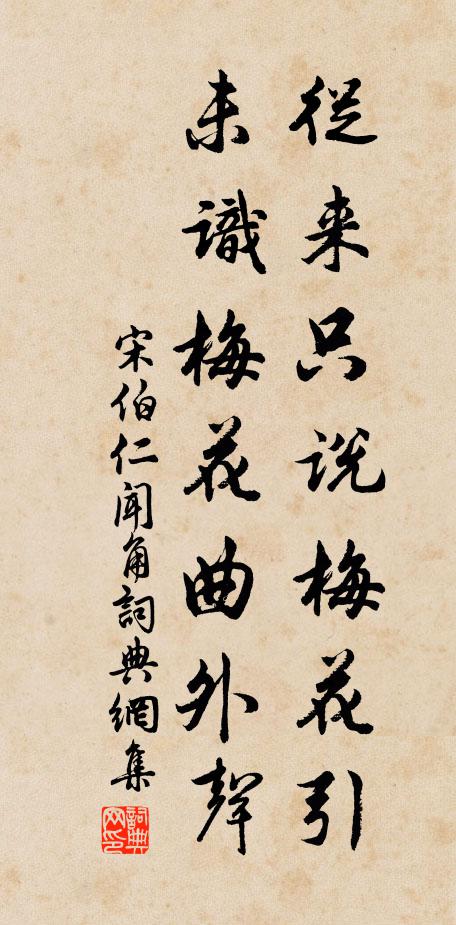 從来只说梅花引
未識梅花曲外聲
宋伯仁闻角詞典網集
詞典网印